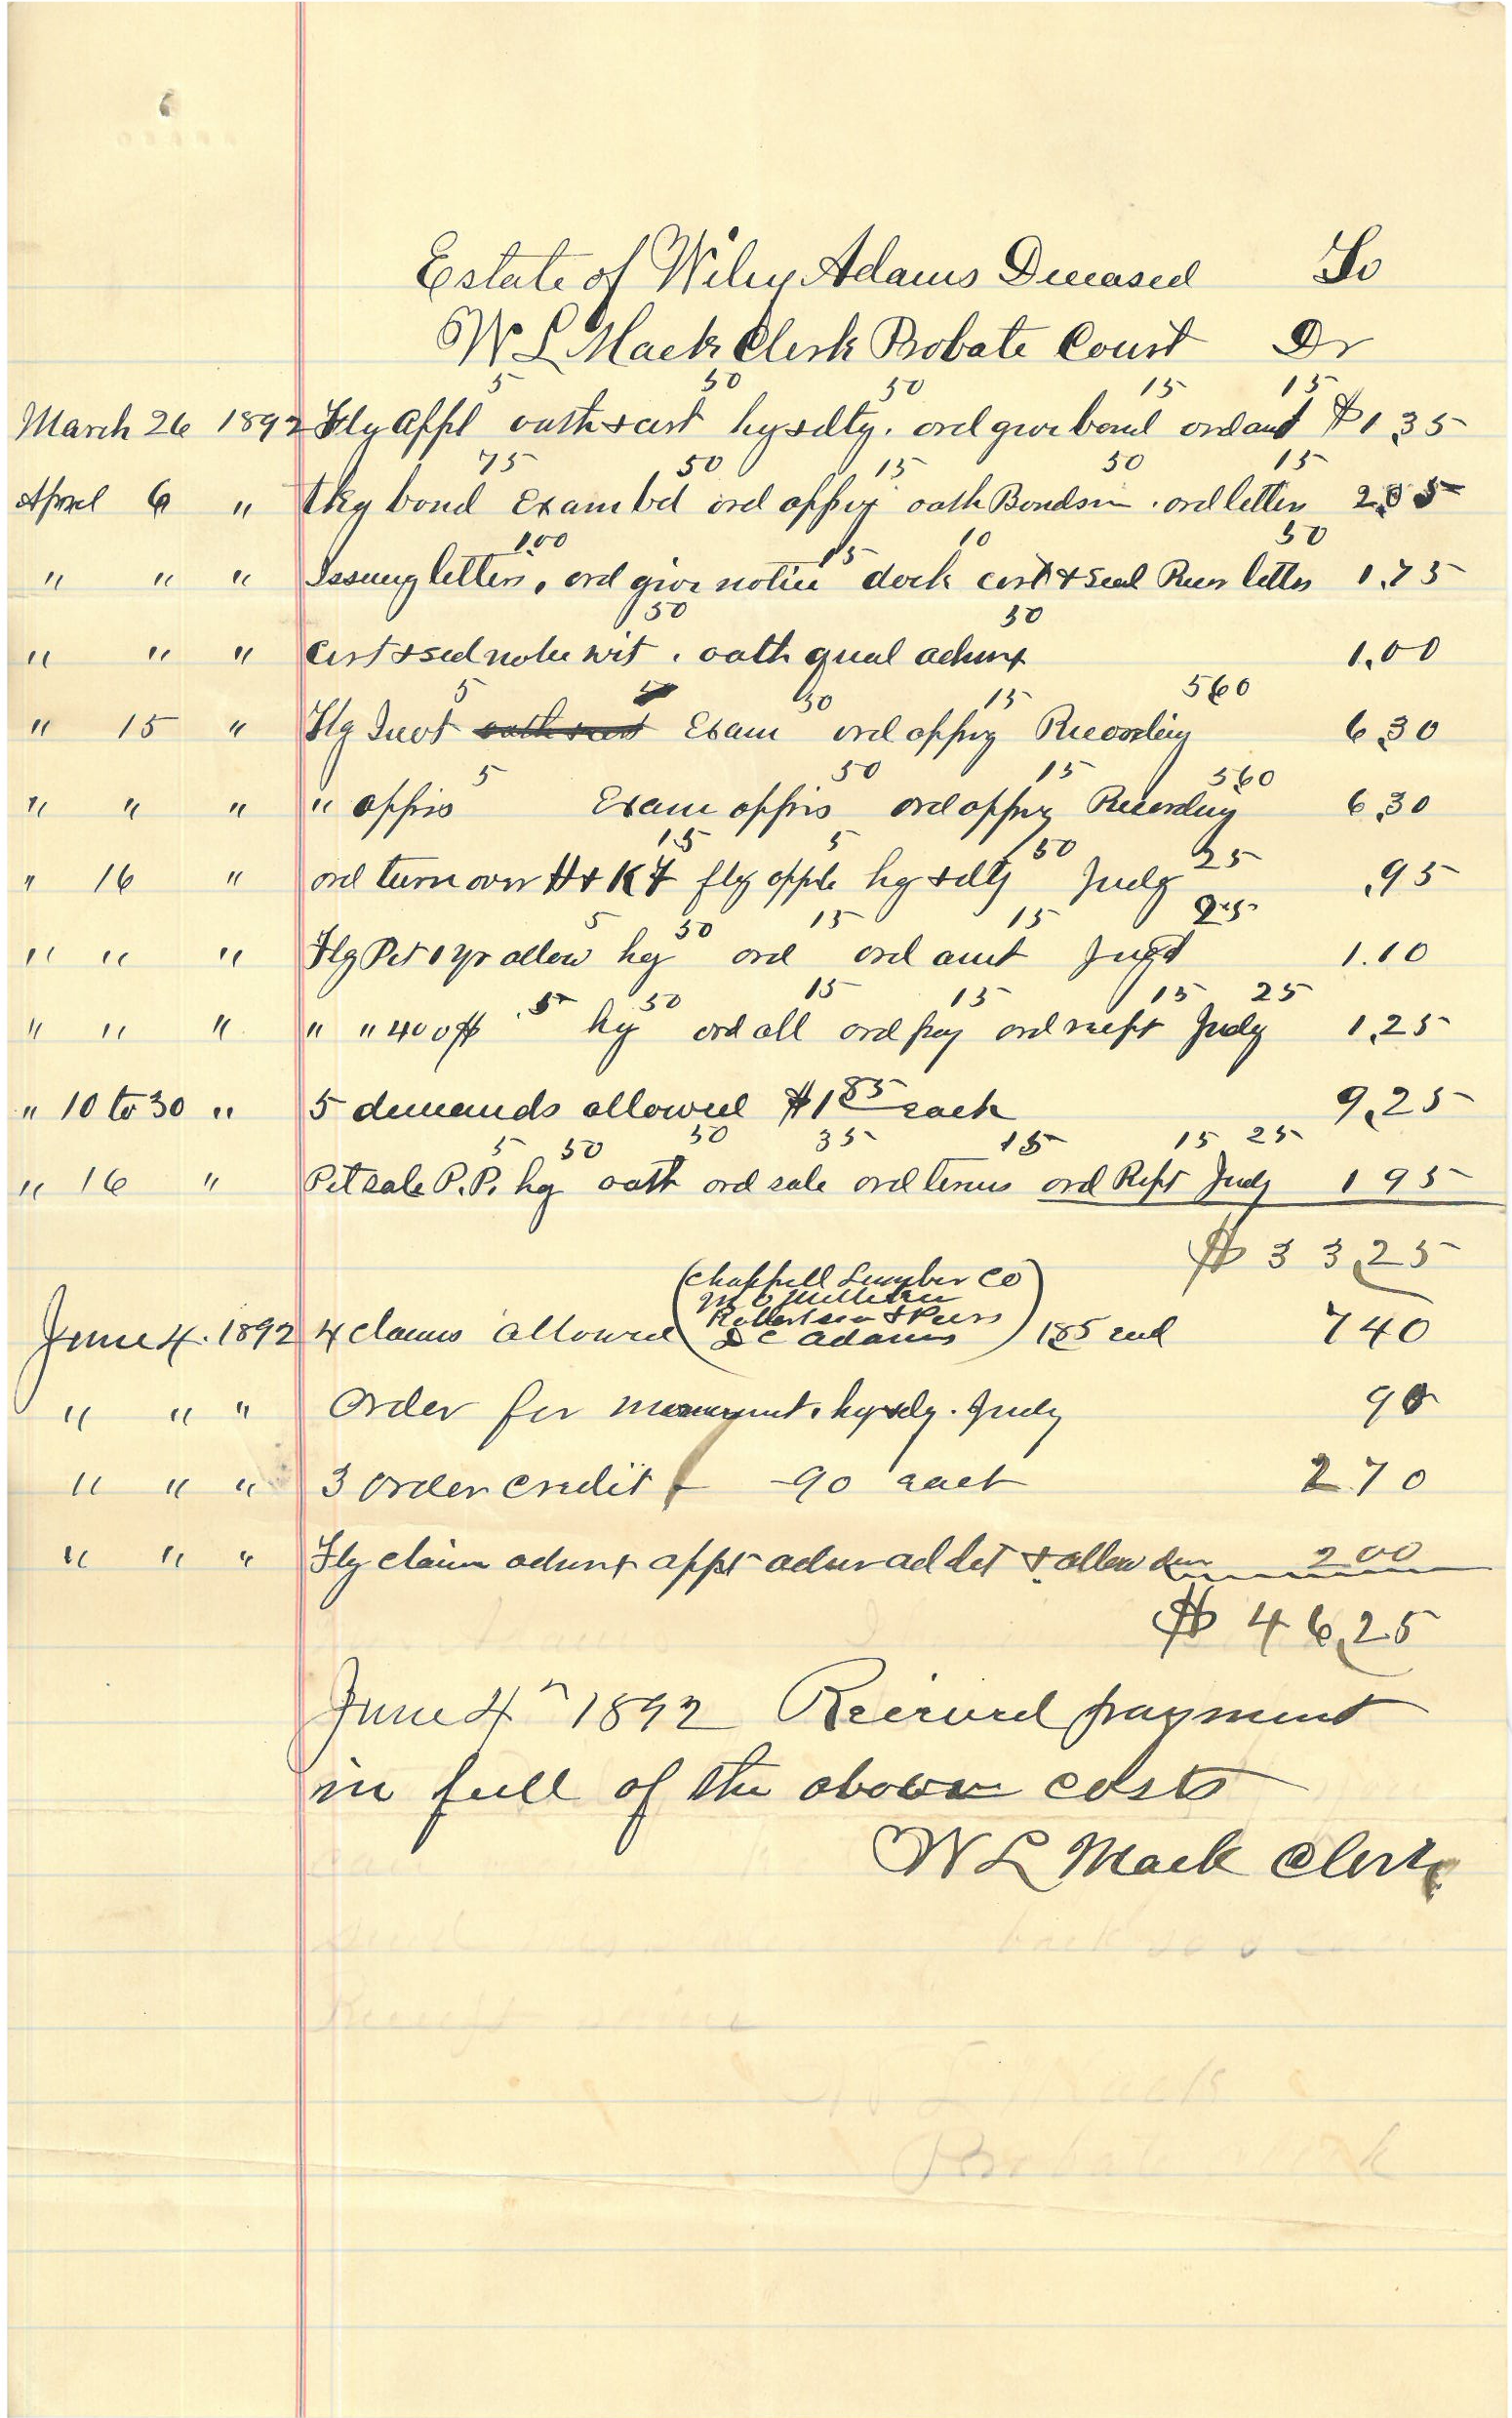 Estate of Wiley Adams Deceased To
W L Mack Clerk Probate Court Dr
5 50 50 15 15
March 26 1892 Flg appl oath & cert hg & dtg. ord give bond ord aut $1.35
75 50 15 50 15
April 6 " tkg bond Exam bd ord apprg oath Bondsm. ord letters 2.05
1.00 15 10 50
" " " Issuing letters, ord give notice dock cert & seal Recr letters 1.75
50 50
" " " Cert & seal notice wit. oath qual admx 1.00
5 50 15 560
" 15 " Flg Invt Exam ord apprg Recording 6.30
5 50 15 560
" " " " appris Exam appris ord apprg Recording 6.30
15 5 50 25
" 16 " ord turn over H & K F flg appli hg & dtg Judg .95
5 50 15 15 25
" " " Flg Pet 1 yr allow hg ord ord amt Jugt 1.10
5 50 15 15 15 25
" " " " " 400$ hg ord all ord pay ord recpt Judg 1.25
" 10 to 30 " 5 demands allowed $1 85 each 9.25
5 50 50 35 15 15 25
" 16 " Pet sale P.P. hg oath ord sale ord terms ord Rept Judg 1 95
$ 33.25
(Chappell Lumber Co
M O Milliken
Robertson & Peers
June 4. 1892 4 claims allowed D C Adams) 1.85 each 7 40
" " " Order for monument. hg & dg. Judg 90
" " " 3 order credit - 90 each 2 70
" " " Flg claim admx appt admr ad lit & allow dem 2 00
$ 46.25
June 4" 1892 Received payment
in full of the above costs
W L Mack Clerk